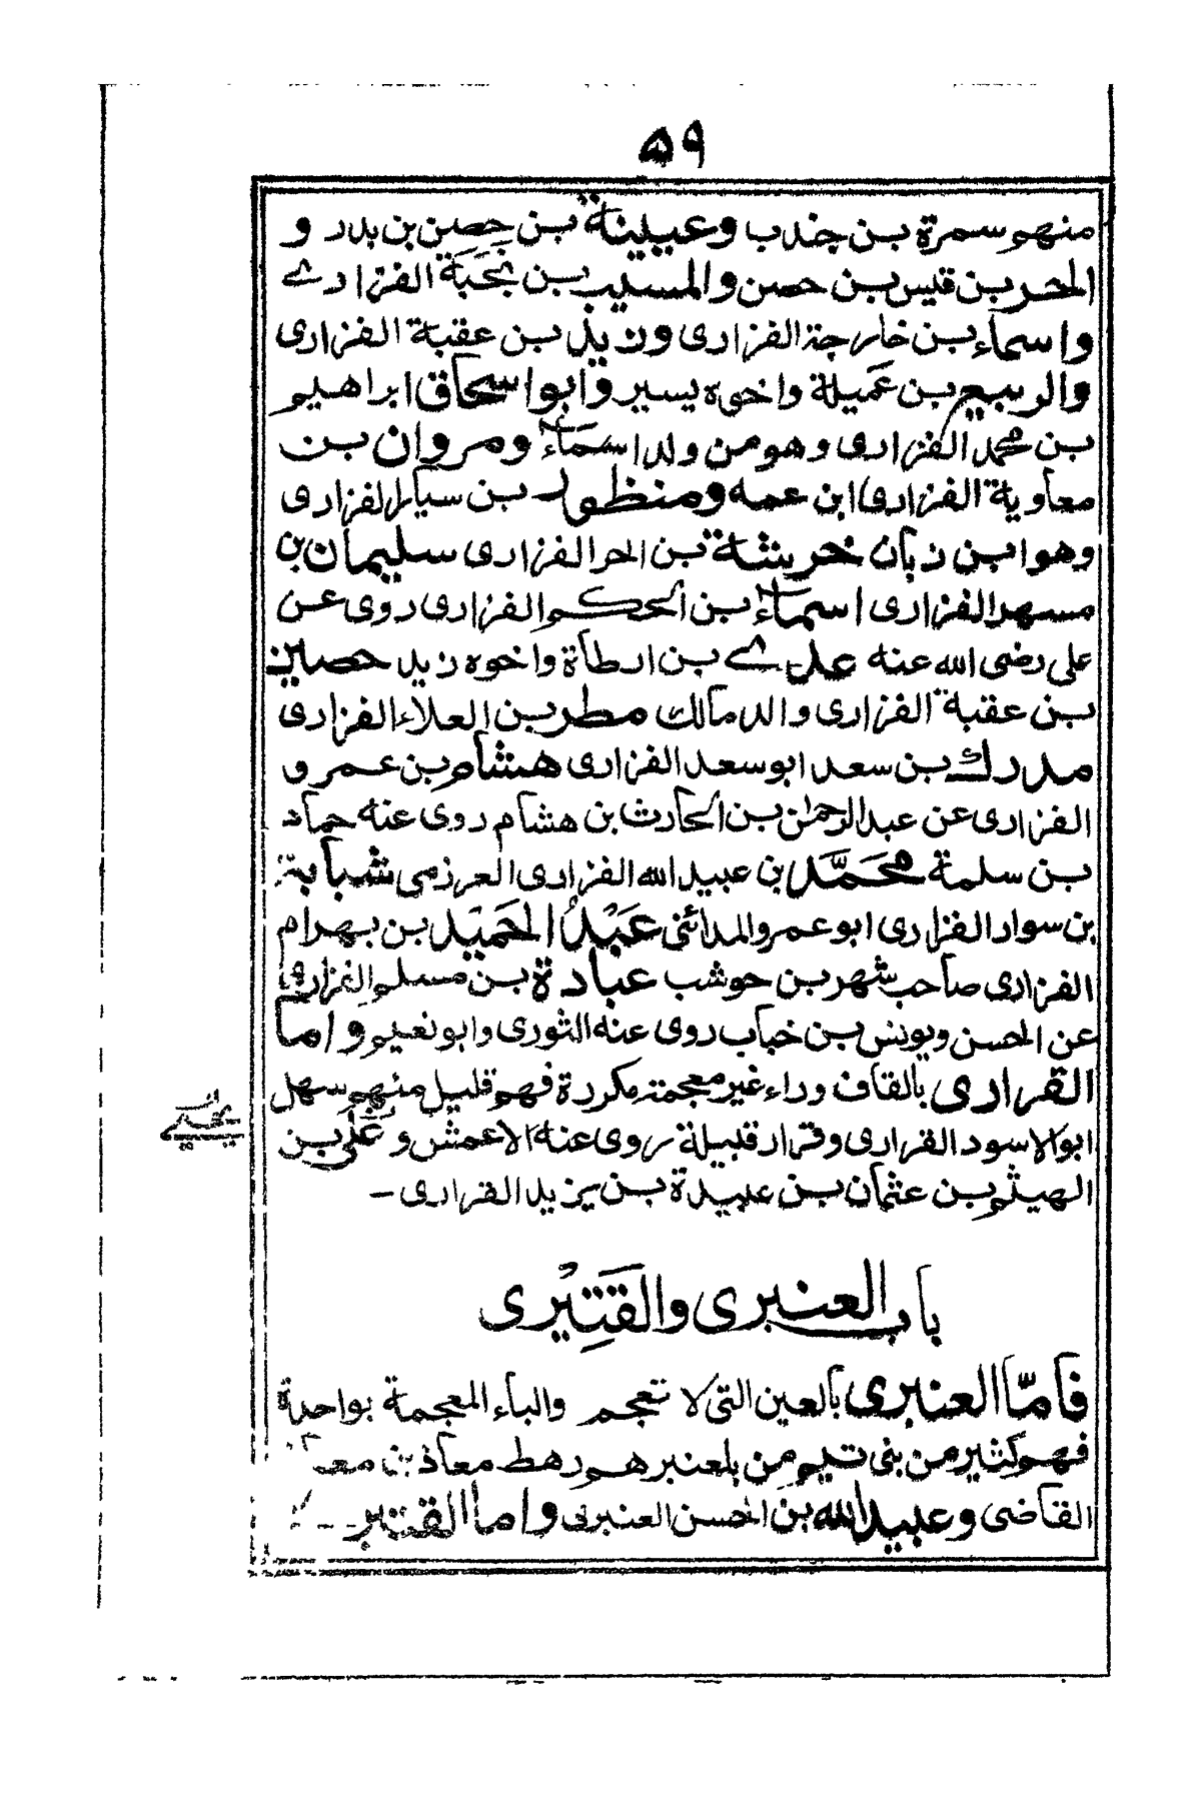 ۵۹
منهم سمرة بن جندب وعيينة بن حصين بن بدر و
الحر بن قيس بن حصن والمسيب بن نجبة الفزارے
واسماء بن خارجة الفزارى وزيد بن عقبة الفزارى
والربيع بن عميلة واخوه يسير وابو اسحاق ابراهيم
بن محمد الفزارى وهو من ولد اسماء ومروان بن
معاوية الفزارى ابن عمه ومنظور بن سيار الفزارى
وهو ابن زبان خرشة بن الحر الفزارى سليمان بن
مسهر الفزارى اسماء بن الحكم الفزارى روى عن
على رضى الله عنه عدے بن ارطاة واخوه زيد حصين
بن عقبة الفزارى والد مالك مطر بن العلاء الفزارى
مدرك بن سعد ابو سعد الفزارى هشام بن عمرو
الفزارى عن عبد الرحمن بن الحارث بن هشام روى عنه حماد
بن سلمة محَمَّد بن عبيد الله الفزارى العرزمى شبابة
بن سوار الفزارى ابو عمرو المدائنى عَبْدُ الحَمِيْد بن بهرام
الفزارى صاحب شهر بن حوشب عبادة بن مسلم الفزارى
عن الحسن ويونس بن خباب روى عنه الثورى وابو نعيم واما
القرارى بالقاف وراء غير معجمة مكررة فهم قليل منهم سهل
ابو الاسود القرارى وقرار قبيلة روى عنه الاعمش وعلى بن
الهيثم بن عثمان بن عبيدة بن يزيد القرارى -
باب العنبرى والقَتِيْرى
فامّا العنبرى بالعين التى لا تعجم والباء المعجمة بواحدة
فهم كثير من بنى تيم من بلعنبر هم رهط معاذ بن معا
القاضى وعبيد الله بن الحسن العنبرى واما القتير